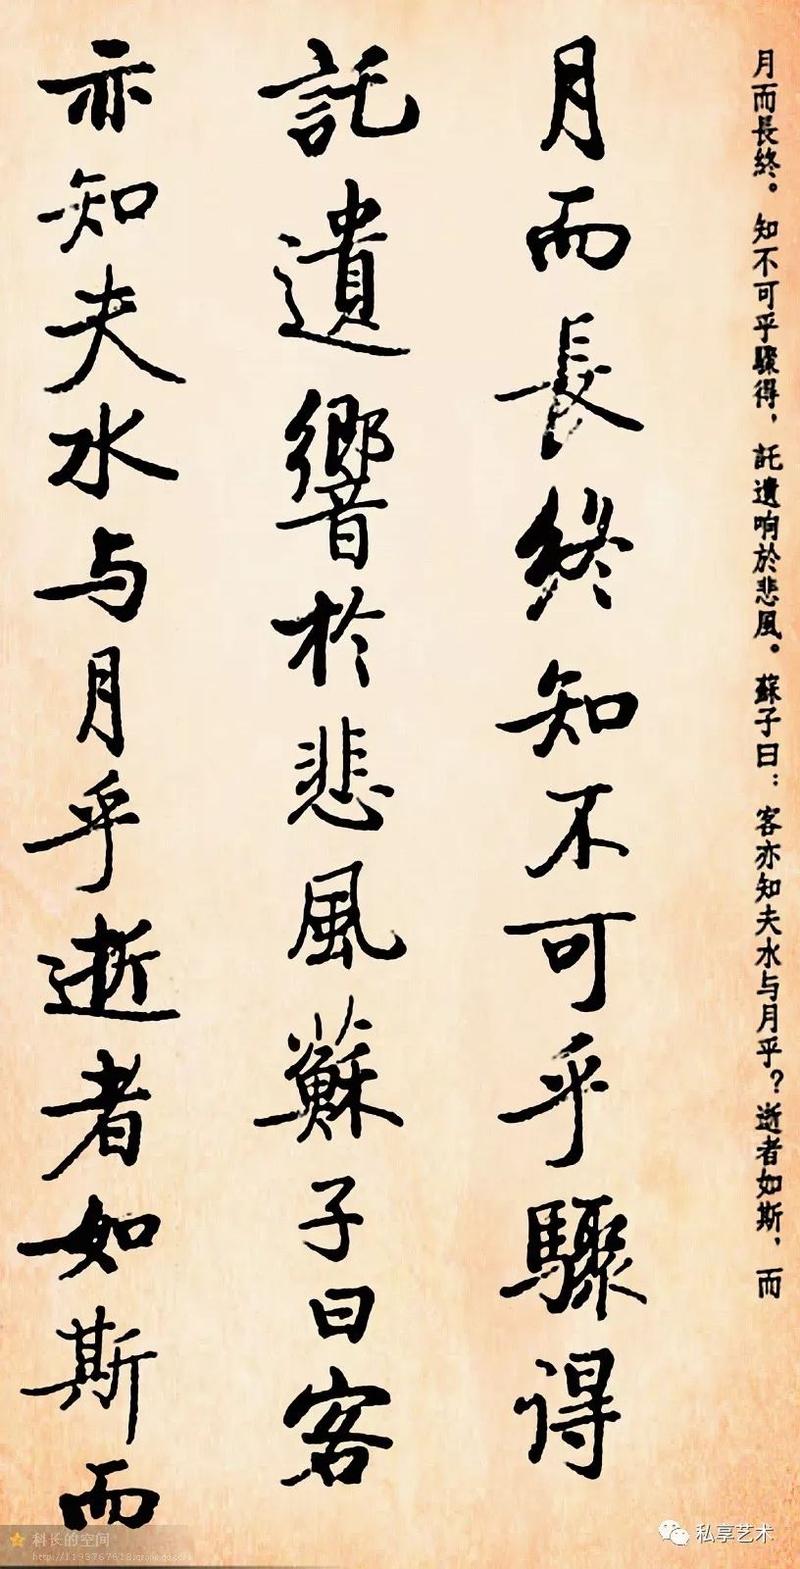 月而長終。知不可乎驟得，託遺响於悲風。蘇子曰：客亦知夫水与月乎？逝者如斯，而
月而長終知不可乎驟得
託遺響於悲風蘇子曰客
亦知夫水与月乎逝者如斯而
科长的空间
私享艺术